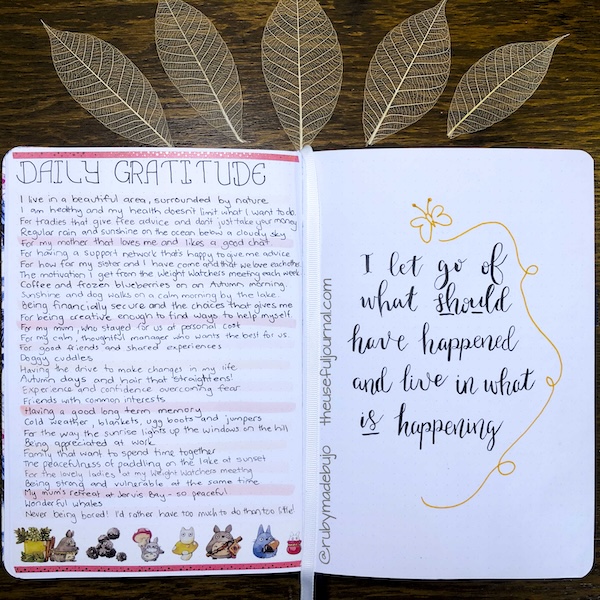 DAILY GRATITUDE
I live in a beautiful area, surrounded by nature
I am healthy and my health doesn't limit what I want to do.
For tradies that give free advice and don't just take your money
Regular rain and sunshine on the ocean below a cloudy sky
For my mother that loves me and likes a good chat
For having a support network that's happy to give me advice
For how far my sister and I have come and that we love each other
The motivation I get from the Weight Watchers meeting each week
Coffee and frozen blueberries on an Autumn morning
Sunshine and dog walks on a calm morning by the lake
Being financially secure and the choices that gives me
For being creative enough to find ways to help myself
For my mum, who stayed for us at personal cost
For my calm, thoughtful manager who wants the best for us.
For good friends and shared experiences
Doggy cuddles
Having the drive to make changes in my life
Autumn days and hair that straightens!
Experience and confidence overcoming fear
Friends with common interests
Having a good long term memory
Cold weather, blankets, ugg boots and jumpers
For the way the sunrise lights up the windows on the hill
Being appreciated at work
Family that want to spend time together
The peacefulness of paddling on the lake at sunset
For the lovely ladies at my Weight Watchers meeting
Being strong and vulnerable at the same time
My mum's retreat at Jervis Bay - so peaceful
Wonderful whales
Never being bored! I'd rather have too much to do than too little!
@rubymadebujo theusefuljournal.com
I let go of
what should
have happened
and live in what
is happening